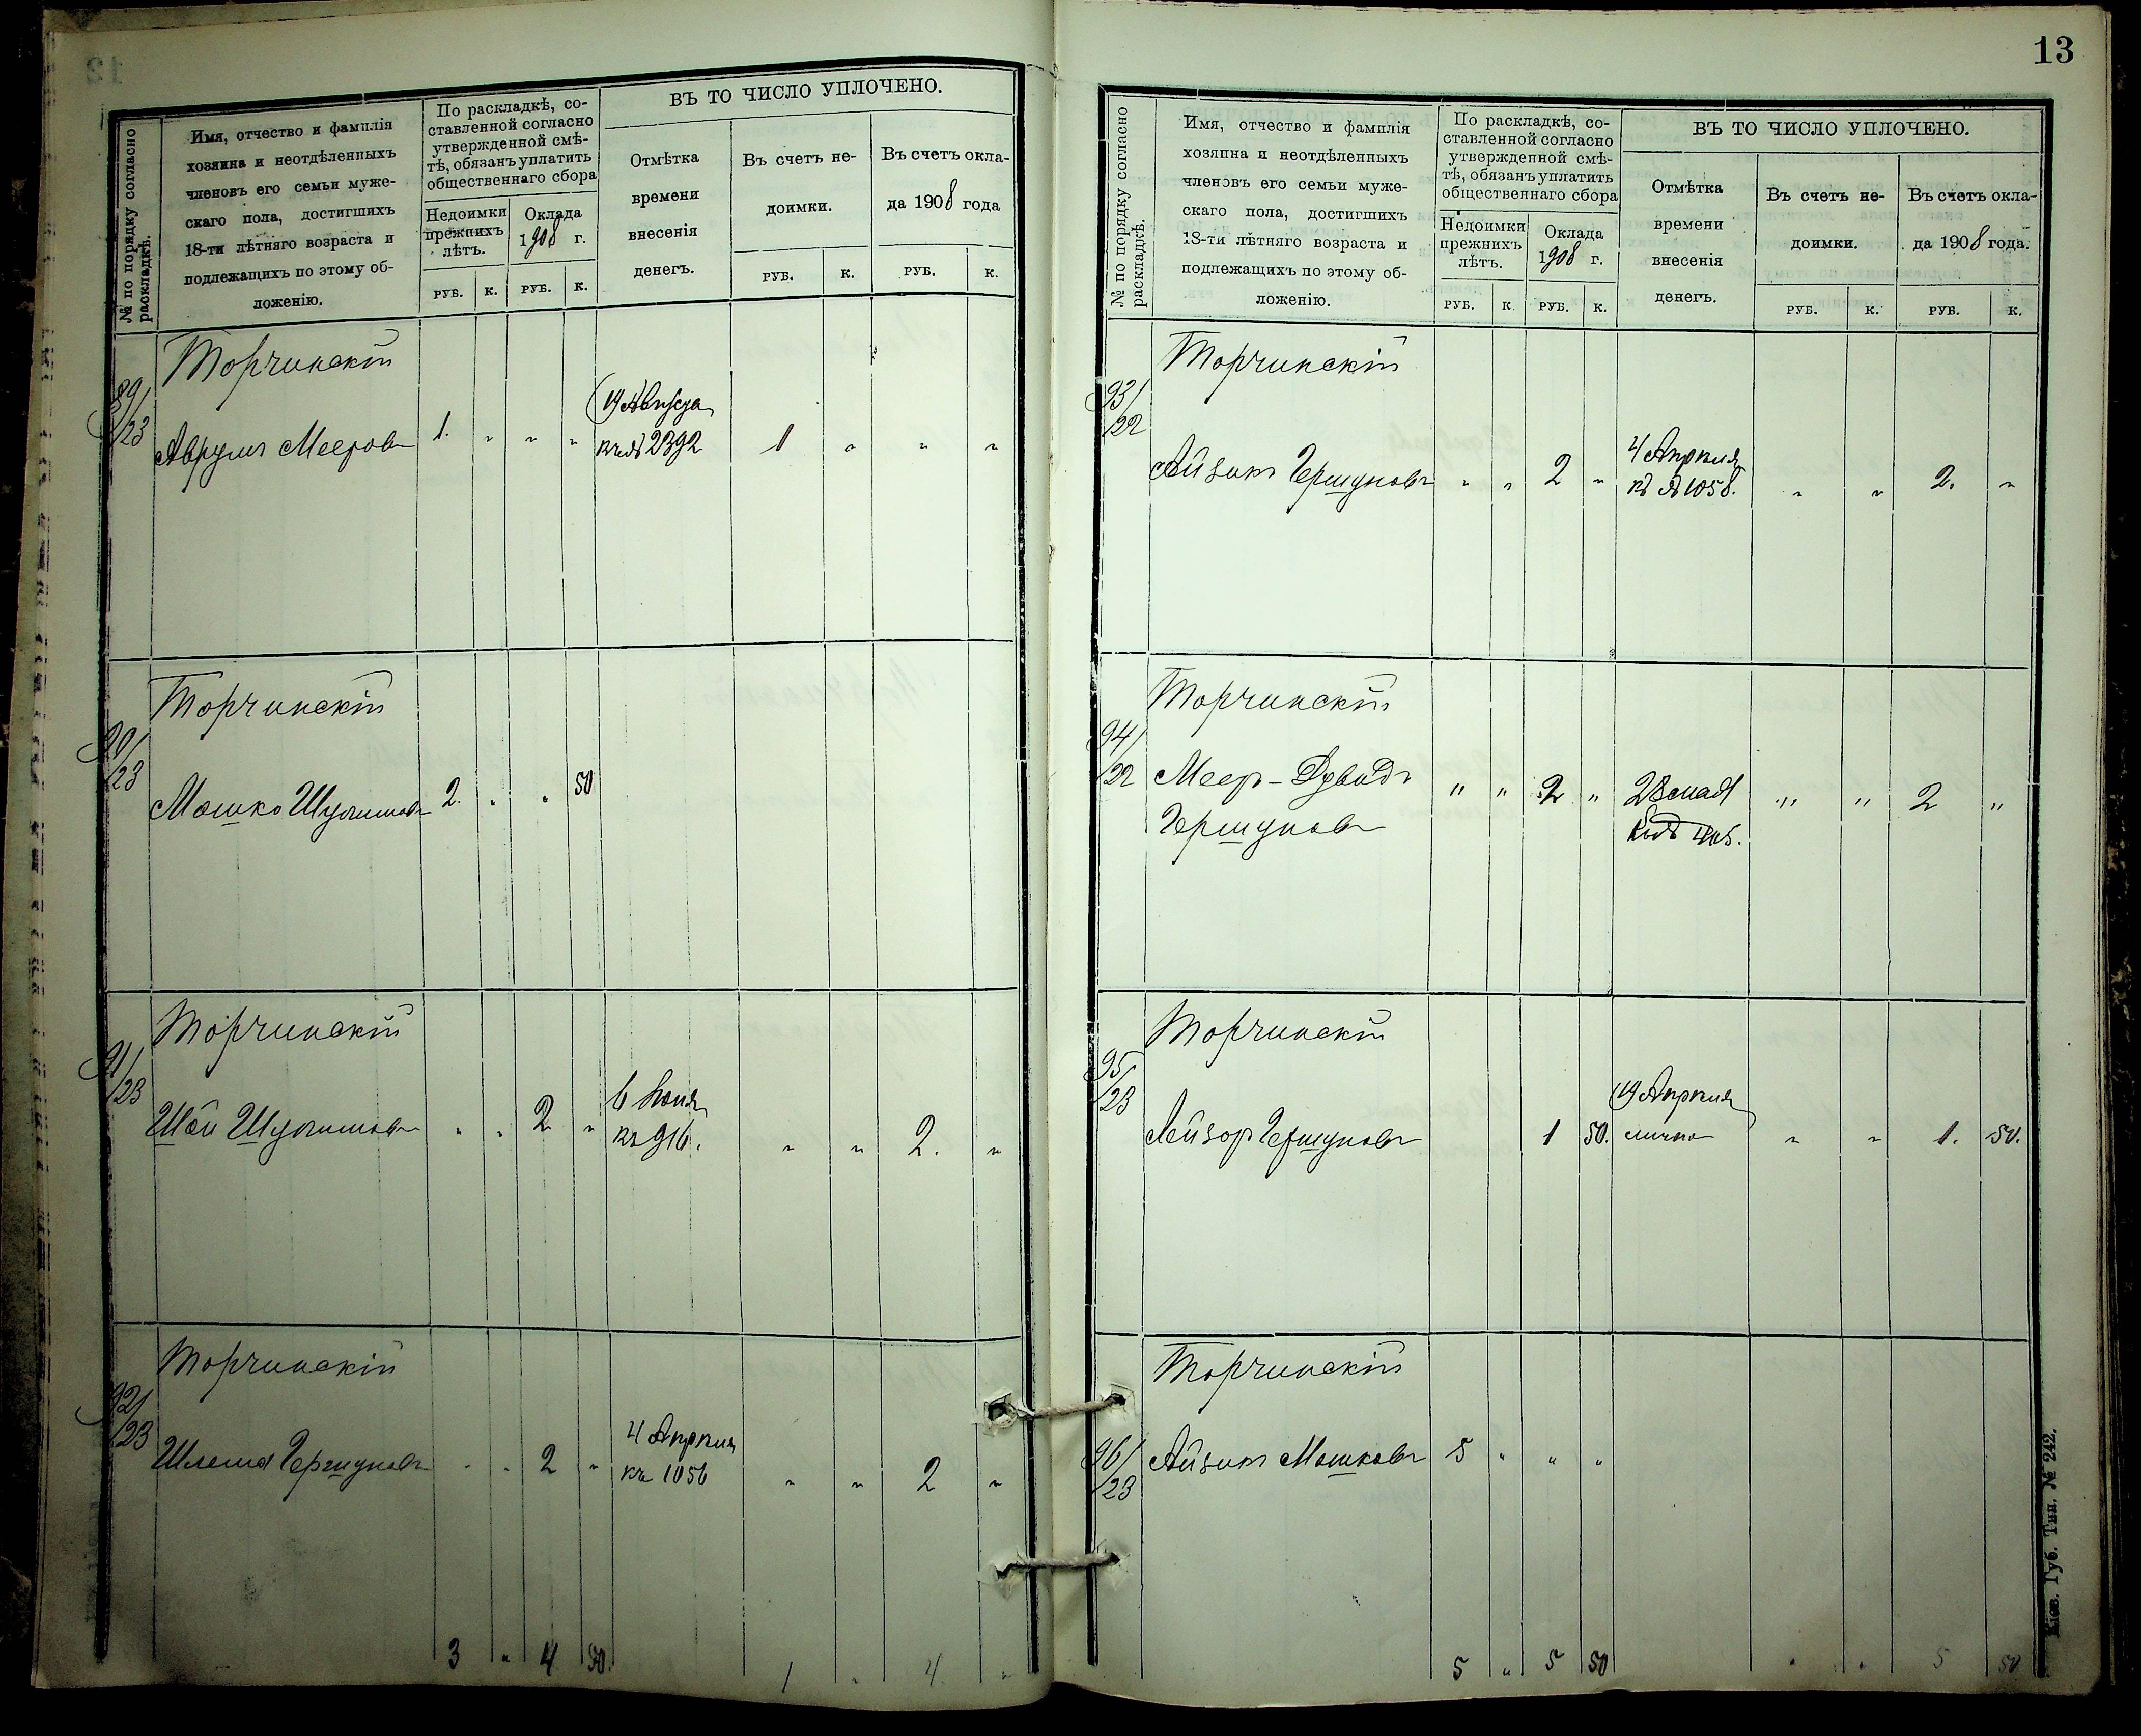 13
№ по порядку согласно
раскладкѣ.
Имя, отчество и фамилія
хозяина и неотдѣленныхъ
членовъ его семьи муже-
скаго пола, достигшихъ
18-ти лѣтняго возраста и
подлежащихъ по этому об-
ложенію.
По раскладкѣ, со-
ставленной согласно
утвержденной смѣ-
тѣ, обязанъ уплатить
общественнаго сбора
Недоимки
прежнихъ
лѣтъ.
Оклада
1908 г.
РУБ. К. РУБ. К.
ВЪ ТО ЧИСЛО УПЛОЧЕНО.
Отмѣтка
времени
внесенія
денегъ.
Въ счетъ не-
доимки.
РУБ. К.
Въ счетъ окла-
да 1908 года
РУБ. К.
Торчинскій
89/
/23
Аврумъ Мееровъ 1. " " "
19 Августа
къ № 2392 1 " " "
Торчинскій
90/
/23
Мошко Шулимовъ 2. " " 50
Торчинскій
91/
/23
Шая Шулимовъ " " 2 "
6 Іюня
къ 916. " " 2. "
Торчинскій
92/
/23
Шлема Гершуновъ " " 2 "
4 Апрѣля
къ 1056 " " 2 "
3 " 4 50. 1 " 4. "
№ по порядку согласно
раскладкѣ.
Имя, отчество и фамилія
хозяина и неотдѣленныхъ
членовъ его семьи муже-
скаго пола, достигшихъ
18-ти лѣтняго возраста и
подлежащихъ по этому об-
ложенію.
По раскладкѣ, со-
ставленной согласно
утвержденной смѣ-
тѣ, обязанъ уплатить
общественнаго сбора
Недоимки
прежнихъ
лѣтъ.
Оклада
1908 г.
РУБ. К. РУБ. К.
ВЪ ТО ЧИСЛО УПЛОЧЕНО.
Отмѣтка
времени
внесенія
денегъ.
Въ счетъ не-
доимки.
РУБ. К.
Въ счетъ окла-
да 1908 года.
РУБ. К.
Торчинскій
93/
/22
Айзикъ Гершуновъ " " 2 "
4 Апрѣля
къ № 1058. " " 2. "
Торчинскій
94/
/22
Меер-Дувидъ " " 2 " 28 мая " " 2 "
Гершуновъ
Торчинскій
95/
/23
Лейзор Гершуновъ 1 50.
19 Апрѣля
лично " " 1. 50.
Торчинскій
96/
/23
Айзикъ Мошковъ 5 " " "
5 " 5 50 " " 5 50
Кіев. Губ. Тип. № 242.